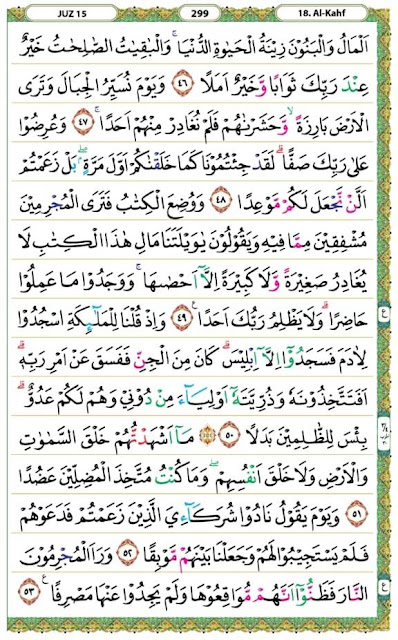 JUZ 15 299 18. Al-Kahf
اَلْمَالُ وَالْبَنُوْنَ زِيْنَةُ الْحَيٰوةِ الدُّنْيَا ۚ وَالْبٰقِيٰتُ الصّٰلِحٰتُ خَيْرٌ
عِنْدَ رَبِّكَ ثَوَابًا وَّخَيْرٌ اَمَلًا ٤٦ وَيَوْمَ نُسَيِّرُ الْجِبَالَ وَتَرَى
الْاَرْضَ بَارِزَةًۙ وَّحَشَرْنٰهُمْ فَلَمْ نُغَادِرْ مِنْهُمْ اَحَدًا ۚ ٤٧ وَعُرِضُوْا
عَلٰى رَبِّكَ صَفًّاۗ لَقَدْ جِئْتُمُوْنَا كَمَا خَلَقْنٰكُمْ اَوَّلَ مَرَّةٍۢ ۖ بَلْ زَعَمْتُمْ
اَلَّنْ نَّجْعَلَ لَكُمْ مَّوْعِدًا ٤٨ وَوُضِعَ الْكِتٰبُ فَتَرَى الْمُجْرِمِيْنَ
مُشْفِقِيْنَ مِمَّا فِيْهِ وَيَقُوْلُوْنَ يٰوَيْلَتَنَا مَالِ هٰذَا الْكِتٰبِ لَا
يُغَادِرُ صَغِيْرَةً وَّلَا كَبِيْرَةً اِلَّآ اَحْصٰىهَا ۚ وَوَجَدُوْا مَا عَمِلُوْا
حَاضِرًاۗ وَلَا يَظْلِمُ رَبُّكَ اَحَدًا ࣖ ٤٩ وَاِذْ قُلْنَا لِلْمَلٰۤىِٕكَةِ اسْجُدُوْا
لِاٰدَمَ فَسَجَدُوْٓا اِلَّآ اِبْلِيْسَۗ كَانَ مِنَ الْجِنِّ فَفَسَقَ عَنْ اَمْرِ رَبِّهٖۗ
اَفَتَتَّخِذُوْنَهٗ وَذُرِّيَّتَهٗٓ اَوْلِيَاۤءَ مِنْ دُوْنِيْ وَهُمْ لَكُمْ عَدُوٌّۗ
بِئْسَ لِلظّٰلِمِيْنَ بَدَلًا ٥٠ مَآ اَشْهَدْتُّهُمْ خَلْقَ السَّمٰوٰتِ
وَالْاَرْضِ وَلَا خَلْقَ اَنْفُسِهِمْۖ وَمَا كُنْتُ مُتَّخِذَ الْمُضِلِّيْنَ عَضُدًا
٥١ وَيَوْمَ يَقُوْلُ نَادُوْا شُرَكَاۤءِيَ الَّذِيْنَ زَعَمْتُمْ فَدَعَوْهُمْ
فَلَمْ يَسْتَجِيْبُوْا لَهُمْ وَجَعَلْنَا بَيْنَهُمْ مَّوْبِقًا ٥٢ وَرَاَ الْمُجْرِمُوْنَ
النَّارَ فَظَنُّوْٓا اَنَّهُمْ مُّوَاقِعُوْهَا وَلَمْ يَجِدُوْا عَنْهَا مَصْرِفًا ࣖ ٥٣